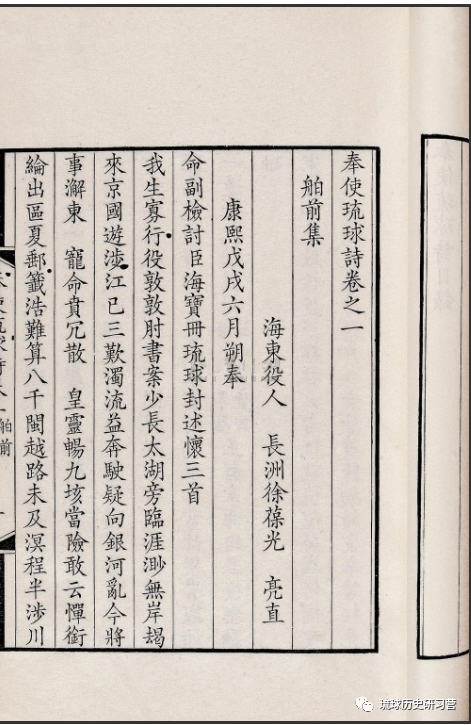 奉使琉球詩卷之一
舶前集
海東役人 長洲徐葆光 亮直
康熙戊戌六月朔奉
命副檢討臣海寶冊琉球封述懷三首
我生寡行役敦敦肘書案少長太湖旁臨涯渺無岸朅
來京國遊涉江已三歎濁流益奔駛疑向銀河亂今將
事澥東 寵命賁冗散 皇靈暢九垓當險敢云憚銜
綸出區夏郵籤浩難算八千閩越路未及溟程半涉川
舶前
琉球历史研习营